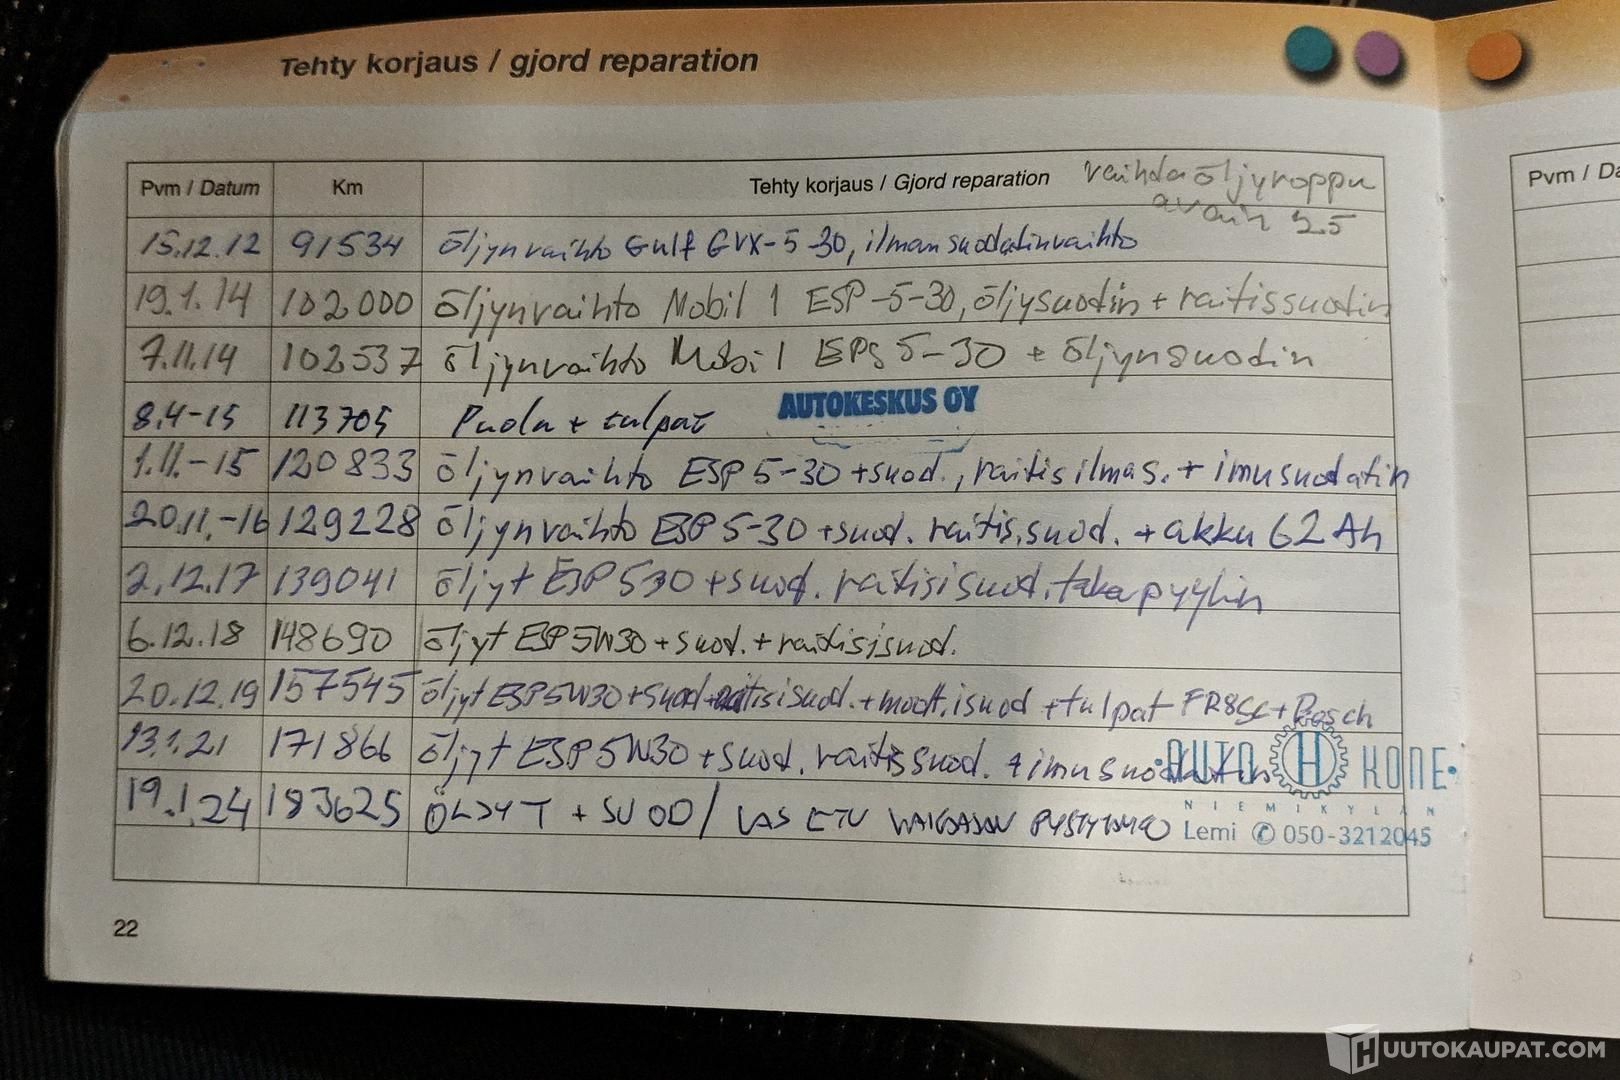 Tehty korjaus / gjord reparation
Pvm / Datum Km Tehty korjaus / Gjord reparation vaihda öljyroppu
avain 2.5
15.12.12 91534 öljynvaihto Gulf GVX-5-30, ilmansuodatinvaihto
19.1.14 102000 öljynvaihto Mobil 1 ESP-5-30, öljysuodin + raitissuodin
7.11.14 102537 öljynvaihto Mobil 1 EPS 5-30 + öljynsuodin
8.4-15 113705 Puola + tulpat AUTOKESKUS OY
1.11.-15 120833 öljynvaihto ESP 5-30 +suod., raitis ilmas. + imusuodatin
20.11.-16 129228 öljynvaihto ESP 5-30 +suod. raitis.suod. +akku 62 Ah
2.12.17 139041 öljyt ESP 530 +suod. raitisisuod. takapyyhin
6.12.18 148690 öljyt ESP 5W30 + suod. + raitisisuod.
20.12.19 157545 öljyt ESP 5W30 +suod +raitisisuod. + moott.isuod +tulpat Bosch
13.1.21 171866 öljyt ESP 5W30 +suod. raitissuod. + imusuodatin
AUTO H KONE
NIEMIKYLÄN
19.1.24 183625 ÖLJYT + SUOD / VAS ETU
Lemi ✆ 050-3212045
22
Pvm / Da
HUUTOKAUPAT.COM